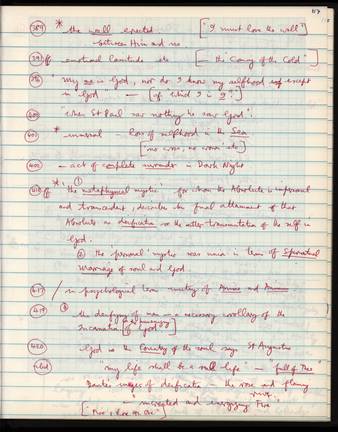 117
(384) * the wall erected ["I must love the wall"]
between Him and me.
emotional lassitude etc ["the Coming of the Cold"]
"My me is God, nor do I know my selfhood except
in God" — [of which I is ?"]
(400) "when St Paul saw nothing he saw God".
(401) * immersal – loss of selfhood in the Sea
[one cross, no crown etc]
(402) – act of complete surrender in Dark Night
ff * (1) "the metaphysical mystic" for whom the Absolute is impersonal
and transcendent, describes his final attainment of that
Absolute as deification or the utter transmutation of the self in
God.
(2) the personal mystic sees man in terms of Spiritual
Marriage of soul and God.
(417) / in psychological terms meeting of Anima and
(419) the deifying of man – a necessary corollary of the
Incarnation of God
(420) God is the Country of the soul says St Augustine
"my life shall be a real life" – "full of Thee"
Dante's images of deification – the rose and flaming
river.
– uncreated and energizing Fire
[Fire & Rose are One]